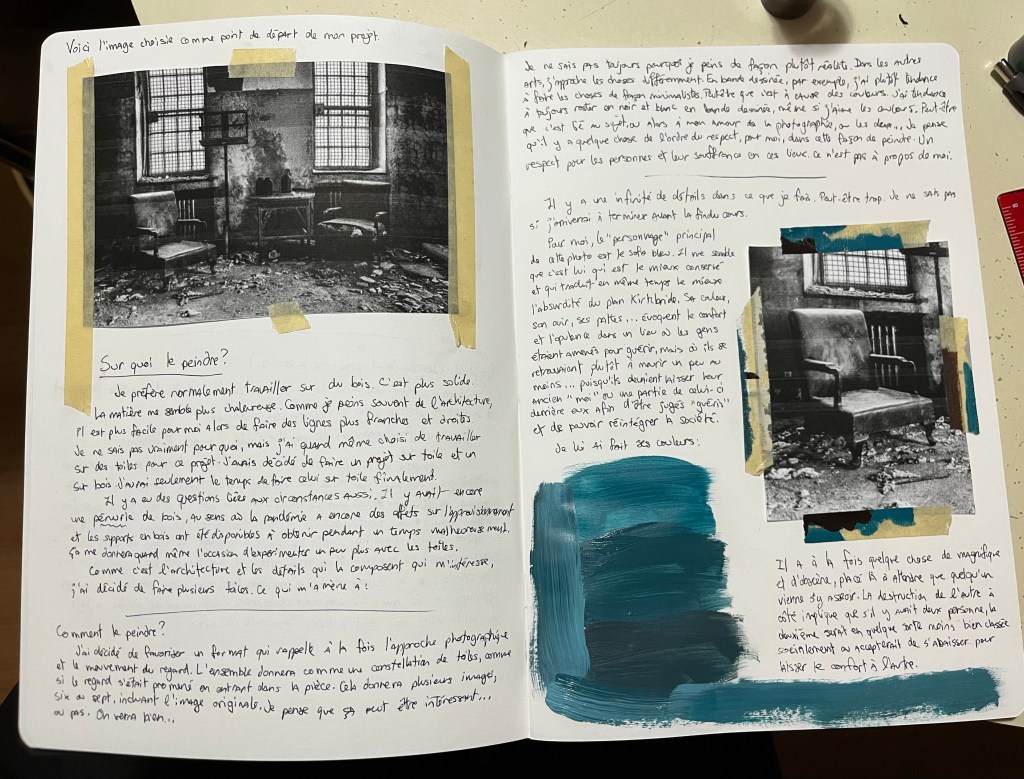 Voici l'image choisie comme point de départ de mon projet.
Sur quoi le peindre?
Je préfère normalement travailler sur du bois. C'est plus solide.
La matière me semble plus chaleureuse. Comme je peins souvent de l'architecture,
il est plus facile pour moi alors de faire des lignes plus franches et droites.
Je ne sais pas vraiment pourquoi, mais j'ai quand même choisi de travailler
sur des toiles pour ce projet. J'avais décidé de faire un projet sur toile et un
sur bois. J'aurai seulement le temps de faire celui sur toile finalement.
Il y a eu des questions liées aux circonstances aussi. Il y avait encore
une pénurie de bois, au sens où la pandémie a encore des effets sur l'approvisionnement
et les supports en bois ont été disponibles à obtenir pendant un temps malheureusement.
Ça me donnera quand même l'occasion d'expérimenter un peu plus avec les toiles.
Comme c'est l'architecture et les détails qui la composent qui m'intéresse,
j'ai décidé de faire plusieurs toiles. Ce qui m'amène à :
Comment le peindre?
J'ai décidé de favoriser un format qui rappelle à la fois l'approche photographique
et le mouvement du regard. L'ensemble donnera comme une constellation de toiles, comme
si le regard s'était promené en entrant dans la pièce. Cela donnera plusieurs images,
six ou sept, incluant l'image originale. Je pense que ça peut être intéressant...
ou pas. On verra bien...
Je ne sais pas toujours pourquoi je peins de façon plutôt réaliste. Dans les autres
arts, j'approche les choses différemment. En bande dessinée, par exemple, j'ai plutôt tendance
à faire les choses de façon minimaliste. Peut-être que c'est à cause des couleurs. J'ai tendance
à toujours rester en noir et blanc en bande dessinée, même si j'aime les couleurs. Peut-être
que c'est lié au sujet, ou alors à mon amour de la photographie, ou les deux. Je pense
qu'il y a quelque chose de l'ordre du respect, pour moi, dans cette façon de peindre. Un
respect pour les personnes et leur souffrance en ces lieux. Ce n'est pas à propos de moi.
Il y a une infinité de détails dans ce que je fais. Peut-être trop. Je ne sais pas
si j'arriverai à terminer avant la fin du cours.
Pour moi, le "personnage" principal
de cette photo est le sofa bleu. Il me semble
que c'est lui qui est le mieux conservé
et qui traduit en même temps le mieux
l'absurdité du plan Kirkbride. Sa couleur,
son cuir, ses pattes... évoquent le confort
et l'opulence dans un lieu où les gens
étaient amenés pour guérir, mais où ils se
retrouvaient plutôt à mourir un peu au
moins... puisqu'ils devaient laisser leur
ancien "moi" ou une partie de celui-ci
derrière eux afin d'être jugés "guéris"
et de pouvoir réintégrer la société.
Je lui ai fait ses couleurs :
Il a à la fois quelque chose de magnifique
et d'obscène, placé là à attendre que quelqu'un
vienne s'y asseoir. La destruction de l'autre à
côté implique que s'il y avait deux personne, la
deuxième serait en quelque sorte moins bien classée
socialement ou accepterait de s'abaisser pour
laisser le confort à l'autre.